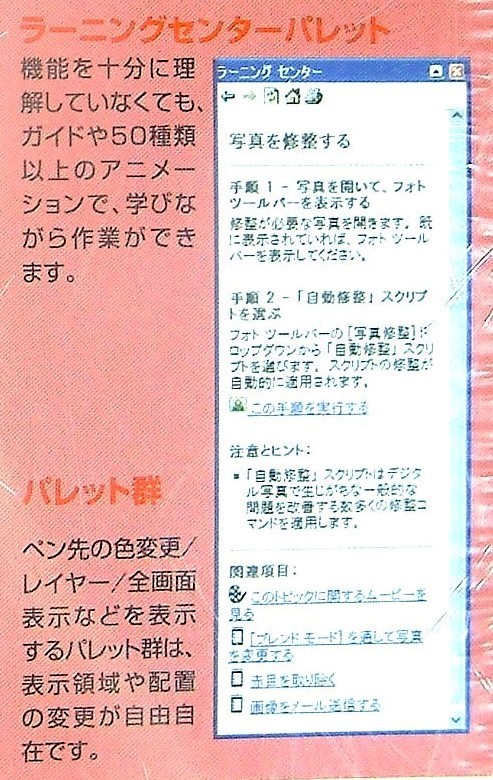 ラーニングセンターパレット
機能を十分に理
解していなくても、
ガイドや50種類
以上のアニメー
ションで、学びな
がら作業ができ
ます。
パレット群
ペン先の色変更/
レイヤー/全画面
表示などを表示
するパレット群は、
表示領域や配置
の変更が自由自
在です。
ラーニング センター
写真を修整する
手順 1 - 写真を開いて、フォト
ツールバーを表示する
修整が必要な写真を開きます。既
に表示されていれば、フォト ツール
バーを表示してください。
手順 2 - 「自動修整」スクリプ
トを選ぶ
フォト ツールバーの [写真修整]ド
ロップダウンから「自動修整」スクリ
プトを選びます。スクリプトの修整が
自動的に適用されます。
この手順を実行する
注意とヒント:
「自動修整」スクリプトはデジタ
ル写真で生じがちな一般的な
問題を改善する数多くの修整コ
マンドを適用します。
関連項目:
このトピックに関するムービーを
見る
[ブレンド モード] を通して写真
を変更する
赤目を取り除く
画像をメール送信する